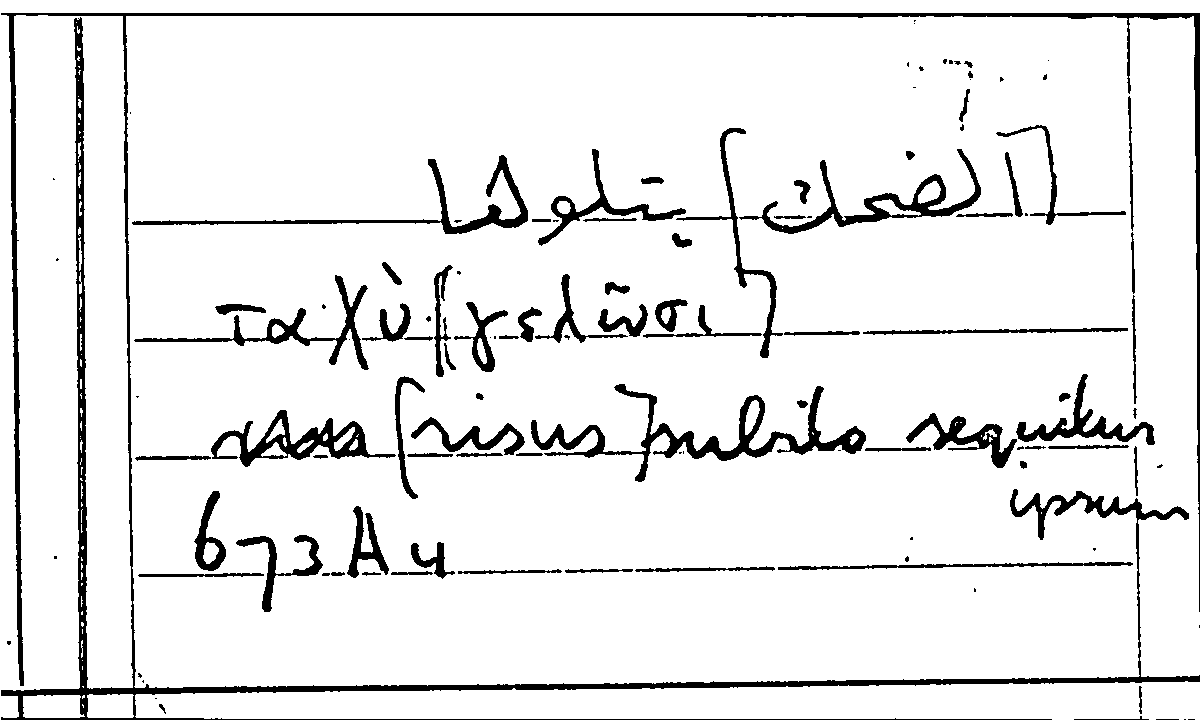 [الضحك] يتلوها
ταχὺ [γελῶσι]
[risus] subito sequitur
ipsum
673A4